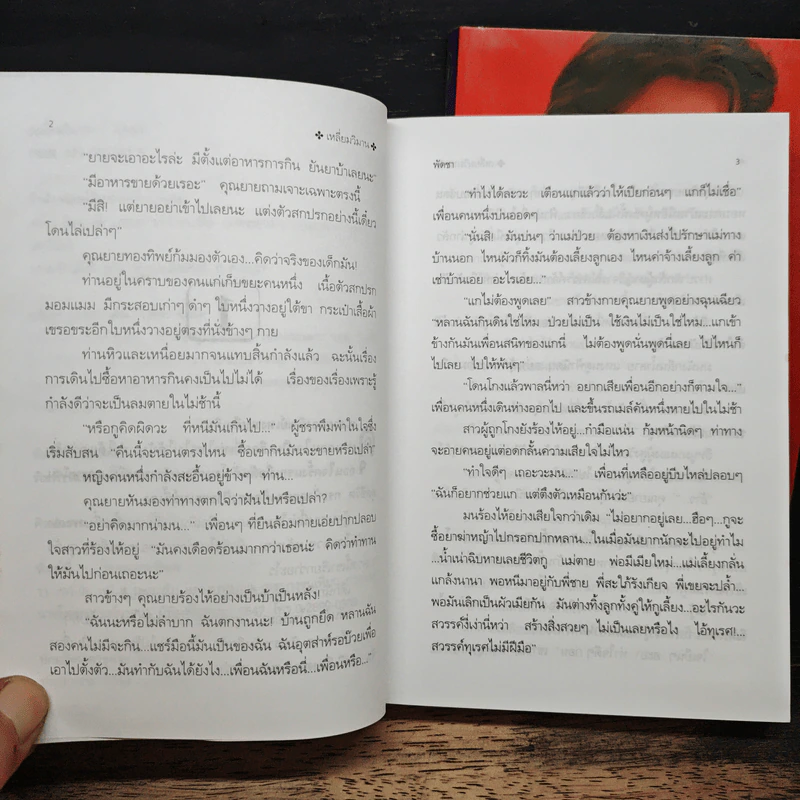 2
✤ เหลี่ยมวิมาน ✤
"ยายจะเอาอะไรล่ะ มีตั้งแต่อาหารการกิน ยันยาบ้าเลยนะ"
"มีอาหารขายด้วยเรอะ" คุณยายถามเจาะเฉพาะตรงนี้
"มีสิ! แต่ยายอย่าเข้าไปเลยนะ แต่งตัวสกปรกอย่างนี้เดี๋ยว
โดนไล่เปล่าๆ"
คุณยายทองทิพย์ก้มมองตัวเอง...คิดว่าจริงของเด็กมัน!
ท่านอยู่ในคราบของคนแก่เก็บขยะคนหนึ่ง เนื้อตัวสกปรก
มอมแมม มีกระสอบเก่าๆ ดำๆ ใบหนึ่งวางอยู่ใต้ขา กระเป๋าเสื้อผ้า
เขรอะขระอีกใบหนึ่งวางอยู่ตรงที่นั่งข้างๆ กาย
ท่านหิวและเหนื่อยมากจนแทบสิ้นกำลังแล้ว ฉะนั้นเรื่อง
การเดินไปซื้อหาอาหารกินคงเป็นไปไม่ได้ เรื่องของเรื่องเพราะรู้
กำลังดีว่าจะเป็นลมตายในไม่ช้านี้
"หรือกูคิดผิดวะ ที่หนีมันเกินไป..." ผู้ชราพึมพำในใจซึ่ง
เริ่มสับสน "คืนนี้จะนอนตรงไหน ซื้อเขากินมันจะขายหรือเปล่า"
หญิงคนหนึ่งกำลังสะอื้นอยู่ข้างๆ ท่าน...
คุณยายหันมองท่าทางตกใจว่าฝันไปหรือเปล่า?
"อย่าคิดมากน่ามน..." เพื่อนๆ ที่ยืนล้อมกายเอ่ยปากปลอบ
ใจสาวที่ร้องไห้อยู่ "มันคงเดือดร้อนมากกว่าเธอน่ะ คิดว่าทำทาน
ให้มันไปก่อนเถอะนะ"
สาวข้างๆ คุณยายร้องไห้อย่างเป็นบ้าเป็นหลัง!
"ฉันนะหรือไม่ลำบาก ฉันตกงานนะ! บ้านถูกยึด หลานฉัน
สองคนไม่มีจะกิน...แชร์มือนี้มันเป็นของฉัน ฉันอุตส่าห์รอบ๊วยเพื่อ
เอาไปตั้งตัว...มันทำกับฉันได้ยังไง...เพื่อนฉันหรือนี่...เพื่อนหรือ..."
พัดชา
3
"ทำไงได้ละวะ เตือนแกแล้วว่าให้เปียก่อนๆ แกก็ไม่เชื่อ"
เพื่อนคนหนึ่งบ่นออดๆ
"นั่นสิ! มันบ่นๆ ว่าแม่ป่วย ต้องหาเงินส่งไปรักษาแม่ทาง
บ้านนอก ไหนผัวก็ทิ้งมันต้องเลี้ยงลูกเอง ไหนค่าจ้างเลี้ยงลูก ค่า
เช่าบ้านเอย อะไรเอย..."
"แกไม่ต้องพูดเลย" สาวข้างกายคุณยายพูดอย่างฉุนเฉียว
"หลานฉันกินดินใช่ไหม ป่วยไม่เป็น ใช้เงินไม่เป็นใช่ไหม...แกเข้า
ข้างกันมันเพื่อนสนิทของแกนี่ ไม่ต้องพูดนั่นพูดนี่เลย ไปไหนก็
ไปเลย ไปให้พ้นๆ"
"โดนโกงแล้วพาลนี่หว่า อยากเสียเพื่อนอีกอย่างก็ตามใจ..."
เพื่อนคนหนึ่งเดินห่างออกไป และขึ้นรถเมล์คันหนึ่งหายไปในไม่ช้า
สาวผู้ถูกโกงยังร้องไห้อยู่...กำมือแน่น ก้มหน้านิดๆ ท่าทาง
จะอายคนอยู่แต่อดกลั้นความเสียใจไม่ไหว
"ทำใจดีๆ เถอะวะมน..." เพื่อนที่เหลืออยู่บีบไหล่ปลอบๆ
"ฉันก็อยากช่วยแก แต่ตึงตัวเหมือนกันว่ะ"
มนร้องไห้อย่างเสียใจกว่าเดิม "ไม่อยากอยู่เลย...ฮือๆ...กูจะ
ซื้อยาฆ่าหญ้าไปกรอกปากหลาน...ในเมื่อมันยากนักจะไปอยู่ทำไม
...น้ำเน่าฉิบหายเลยชีวิตกู แม่ตาย พ่อมีเมียใหม่...แม่เลี้ยงกลั่น
แกล้งนานา พอหนีมาอยู่กับพี่ชาย พี่สะใภ้รังเกียจ พี่เขยจะปล้ำ...
พอมันเลิกเป็นผัวเมียกัน มันต่างทิ้งลูกทั้งคู่ให้กูเลี้ยง...อะไรกันวะ
สวรรค์งี่เง่านี่หว่า สร้างสิ่งสวยๆ ไม่เป็นเลยหรือไง ไอ้ทุเรศ!...
สวรรค์ทุเรศไม่มีฝีมือ"